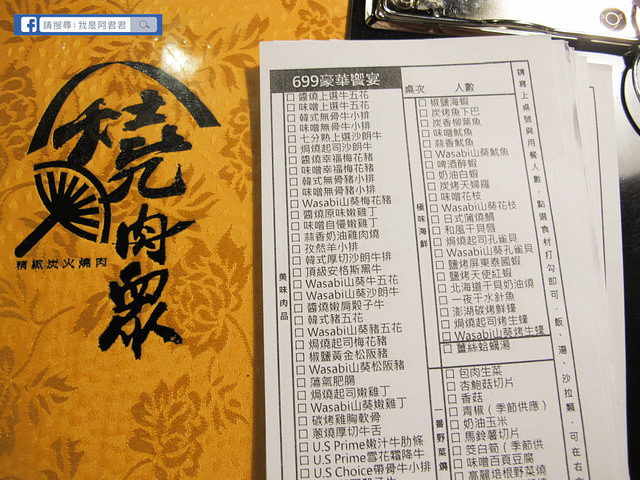 請搜尋:我是阿君君
燒肉眾
精緻炭火燒肉
699豪華饗宴
桌次 人數
美味肉品
醬燒上選牛五花
味噌上選牛五花
韓式無骨牛小排
味噌無骨牛小排
七分熟上選沙朗牛
焗燒起司沙朗牛
醬燒幸福梅花豬
味噌幸福梅花豬
韓式無骨豬小排
味噌無骨豬小排
Wasabi山葵梅花豬
醬燒原味嫩雞丁
味噌自慢嫩雞丁
蒜香奶油雞肉燒
孜然羊小排
韓式厚切沙朗牛排
頂級安格斯黑牛
Wasabi山葵牛五花
Wasabi山葵沙朗牛
醬燒嫩肩骰子牛
韓式豬五花
Wasabi山葵豬五花
焗燒起司梅花豬
椒鹽黃金松阪豬
Wasabi山葵松阪豬
蒲氣肥腸
焗燒起司嫩雞丁
Wasabi山葵嫩雞丁
碳烤雞胸軟骨
蔥燒厚切牛舌
U.S Prime嫩汁牛肋條
U.S Prime雪花霜降牛
U.S Choice帶骨牛小排
極味海鮮
椒鹽海蝦
炭烤魚下巴
炭香柳葉魚
味噌魷魚
蒜香魷魚
Wasabi山葵魷魚
啤酒醉蝦
奶油白蝦
炭烤天婦羅
味噌花枝
Wasabi山葵花枝
日式蒲燒鯛
和風干貝唇
焗燒起司孔雀貝
Wasabi山葵孔雀貝
鹽烤屏東泰國蝦
鹽烤天使紅蝦
北海道干貝奶油燒
一夜干水針魚
澎湖碳烤鮮蠔
焗燒起司烤生蠔
Wasabi山葵烤生蠔
薑絲蛤蠣湯
一番野菜燒
包肉生菜
杏鮑菇切片
香菇
青椒（季節供應）
奶油玉米
馬鈴薯切片
筊白筍（季節供
味噌百頁豆腐
高麗培根野菜燒
請寫上桌號與用餐人數，點選食材打勾即可，飯、湯、沙拉類，可在右